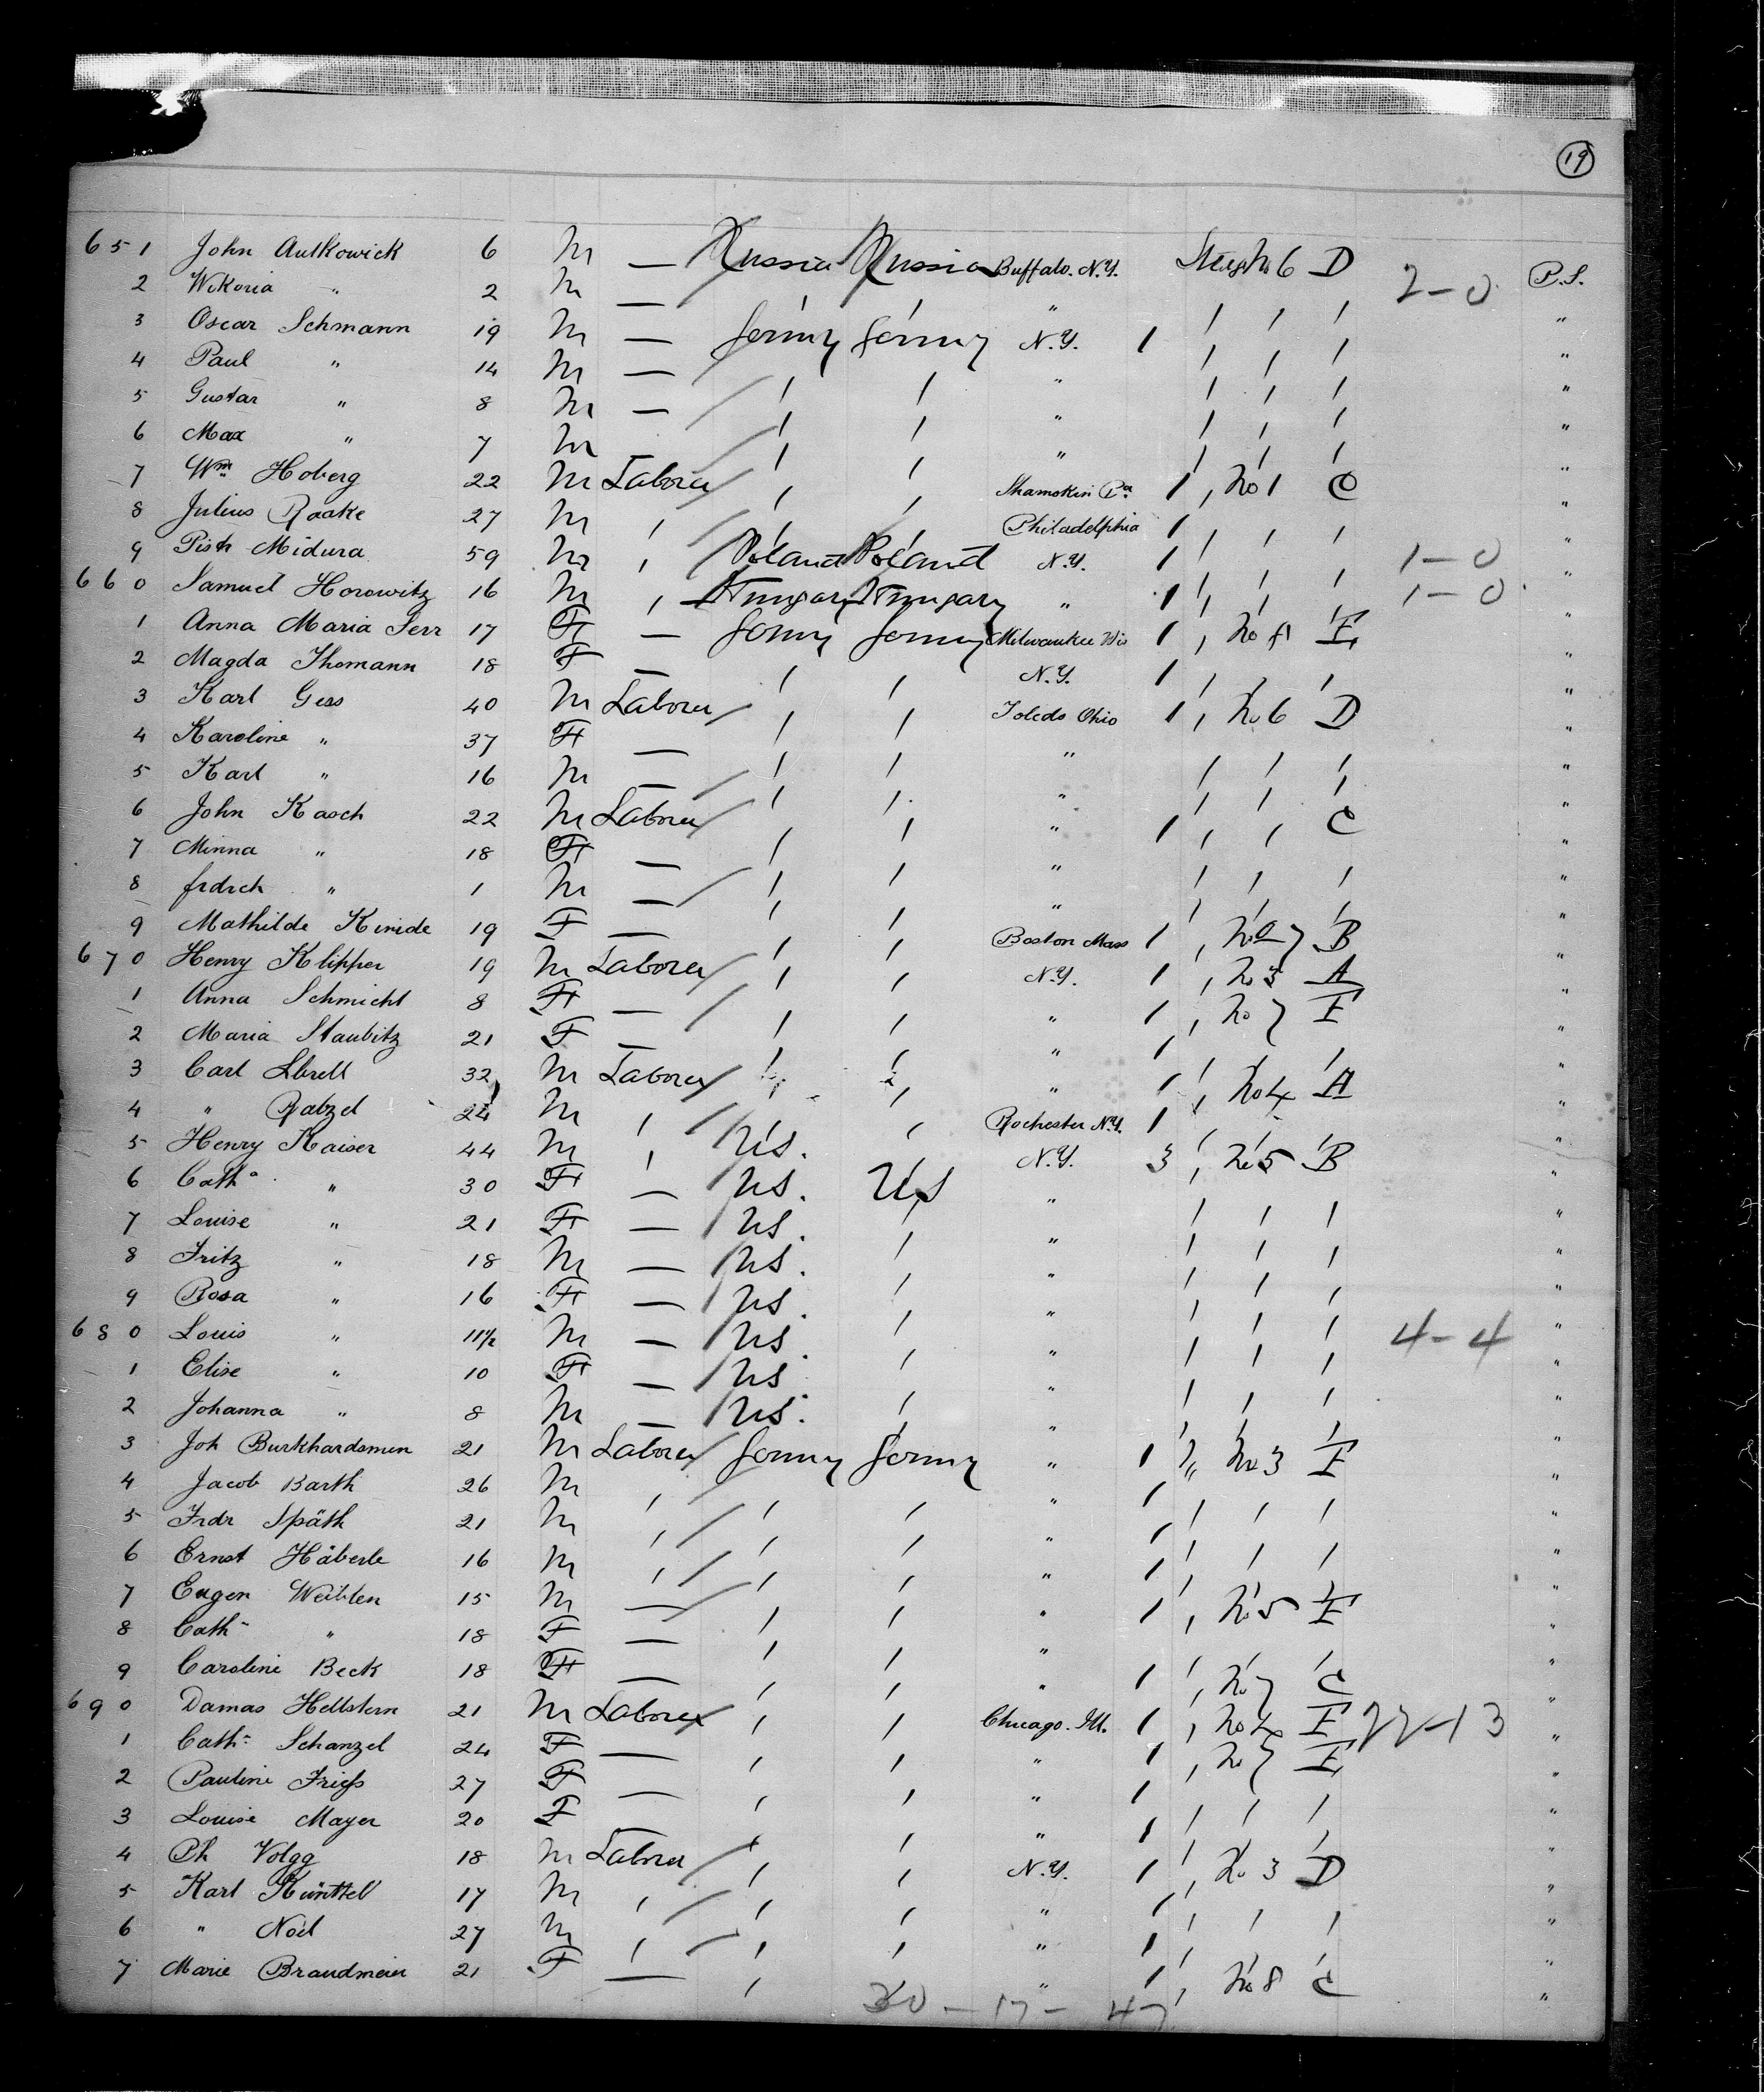 19
651 John Autkowick 6 M — Russia Russia Buffalo. N.Y. No 6 D P.S.
2 Wikoria " 2 M — ' ' " ' ' ' 2-0 "
3 Oscar Schmann 19 M — Germy Germy N.Y. 1 ' ' ' "
4 Paul " 14 M — ' ' " ' ' ' "
5 Gustav " 8 M — ' ' " ' ' ' "
6 Max " 7 M ' ' " ' ' ' "
7 Wm Hoberg 22 M Laborer ' ' Shamokin Pa 1 ' No 1 C "
8 Julius Raake 27 M ' ' ' Philadelphia 1 ' ' ' "
9 Pish Midura 59 M ' Poland Poland N.Y. 1 ' ' ' 1-0 "
660 Samuel Horowitz 16 M ' Hungary Hungary " 1 ' ' ' 1-0 "
1 Anna Maria Serr 17 F — Germy Germy Milwaukee Wis 1 ' No E "
2 Magda Thomann 18 F — ' ' N.Y. 1 ' ' ' "
3 Karl Gess 40 M Laborer ' ' Toledo Ohio 1 ' No 6 D "
4 Karoline " 37 F — ' ' " ' ' ' "
5 Karl " 16 M — ' ' " ' ' ' "
6 John Kasch 22 M Laborer ' ' " 1 ' ' C "
7 Minna " 18 F — ' ' " ' ' ' "
8 frdrch " 1 M — ' ' " ' ' ' "
9 Mathilde Kinide 19 F — ' ' Boston Mass 1 ' No 7 B "
670 Henry Klipper 19 M Laborer ' ' N.Y. 1 ' No 3 A "
1 Anna Schmicht 8 F — ' ' " 1 ' No 7 E "
2 Maria Staubitz 21 F — ' ' " 1 ' ' ' "
3 Carl 32 M Laborer ' ' " 1 ' No 4 A "
4 " Rabzel 24 M ' ' ' Rochester N.Y. 1 ' ' ' "
5 Henry Kaiser 44 M ' U.S. N.Y. 3 ' No 5 B "
6 Catha " 30 F — U.S. U.S " ' ' ' "
7 Louise " 21 F — U.S. ' " ' ' ' "
8 Fritz " 18 M — U.S. ' " ' ' ' "
9 Rosa " 16 F — U.S. ' " ' ' ' "
680 Louis " 11½ M — U.S. ' " ' ' ' 4-4 "
1 Elise " 10 F — U.S. ' " ' ' ' "
2 Johanna " 8 M — U.S. ' " ' ' ' "
3 Joh Burkhardsmen 21 M Laborer Germy Germy " 1 " No 3 E "
4 Jacob Barth 26 M ' ' ' " 1 ' ' ' "
5 Frdr Späth 21 M ' ' ' " 1 ' ' ' "
6 Ernst Häberle 16 M ' ' ' " 1 ' ' ' "
7 Eugen Weiblen 15 M — ' ' " 1 ' No 5 E "
8 Cath " 18 F — ' ' " ' ' ' "
9 Caroline Beck 18 F — ' ' " 1 ' No 7 C "
690 Damas Hellstern 21 M Laborer ' ' Chicago. Ill. 1 ' No 4 E 22-13 "
1 Cath Schanzel 24 F — ' ' " 1 ' No 7 E "
2 Pauline Friess 27 F — ' ' " 1 ' ' ' "
3 Louise Mayer 20 F — ' ' " 1 ' ' ' "
4 Ph Volgg 18 M Laborer ' ' N.Y. 1 ' No 3 D "
5 Karl Künttel 17 M ' ' ' " 1 ' ' ' "
6 " Noel 27 M ' ' ' " 1 ' ' ' "
7 Marie Braudmeier 21 F — ' " 1 ' No 8 C "
30-17-47